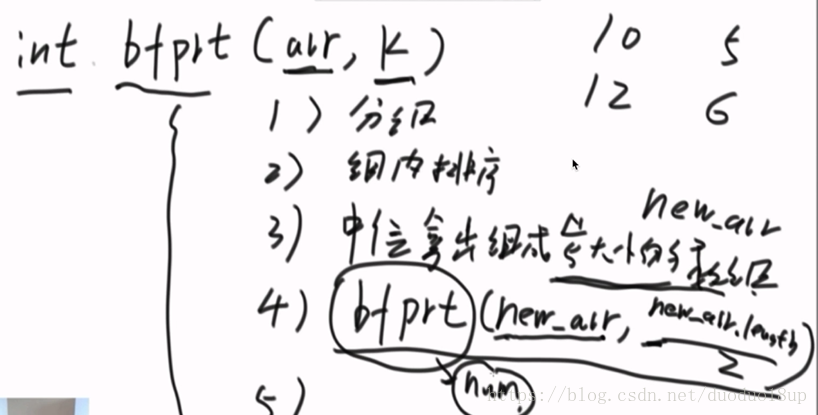 int bfprt(arr, K) 10 5
12 6
1) 分组
2) 组内排序
new_arr
3) 中位拿出组成 N/5 大小的新数组
4) bfprt(new_arr, new_arr.length/2)
num
5)
https://blog.csdn.net/duoduo18up